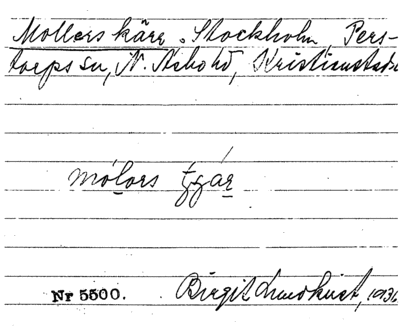 Mollers kärr. Stockholm Pers-
torps sn, N. Åsbo hd, Kristianstads
mólors
Nr 5500. Birgit Lundkvist, 1936